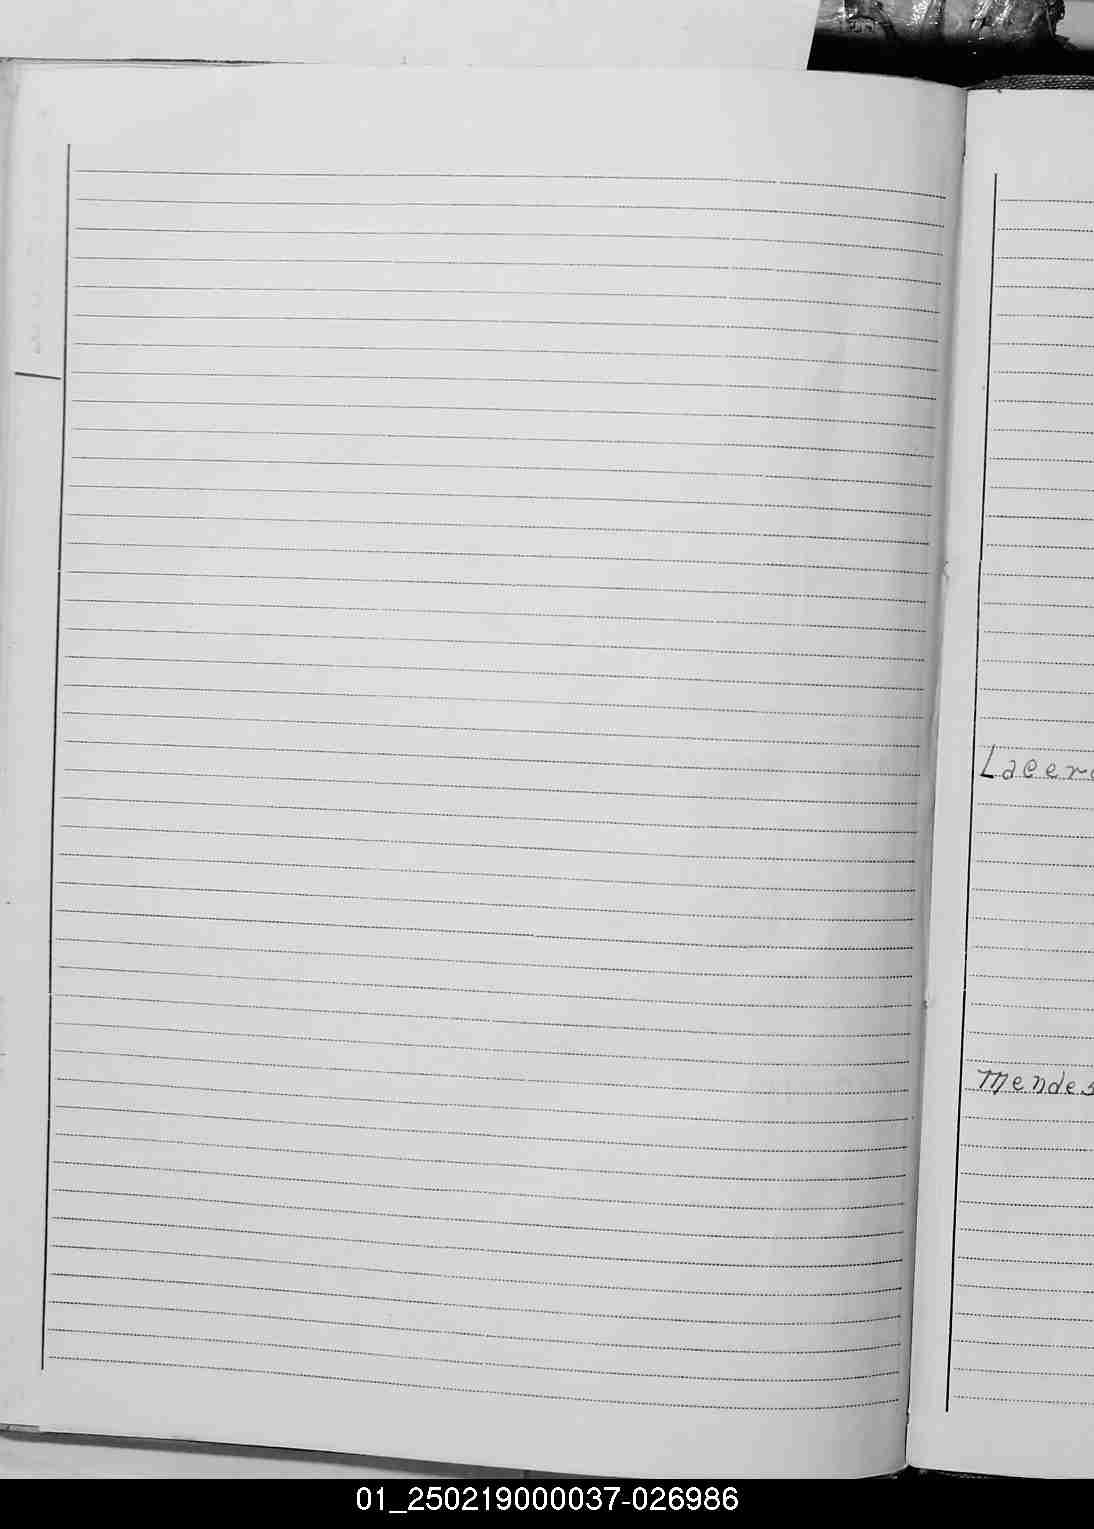 Lacer
Mendes
01_250219000037-026986